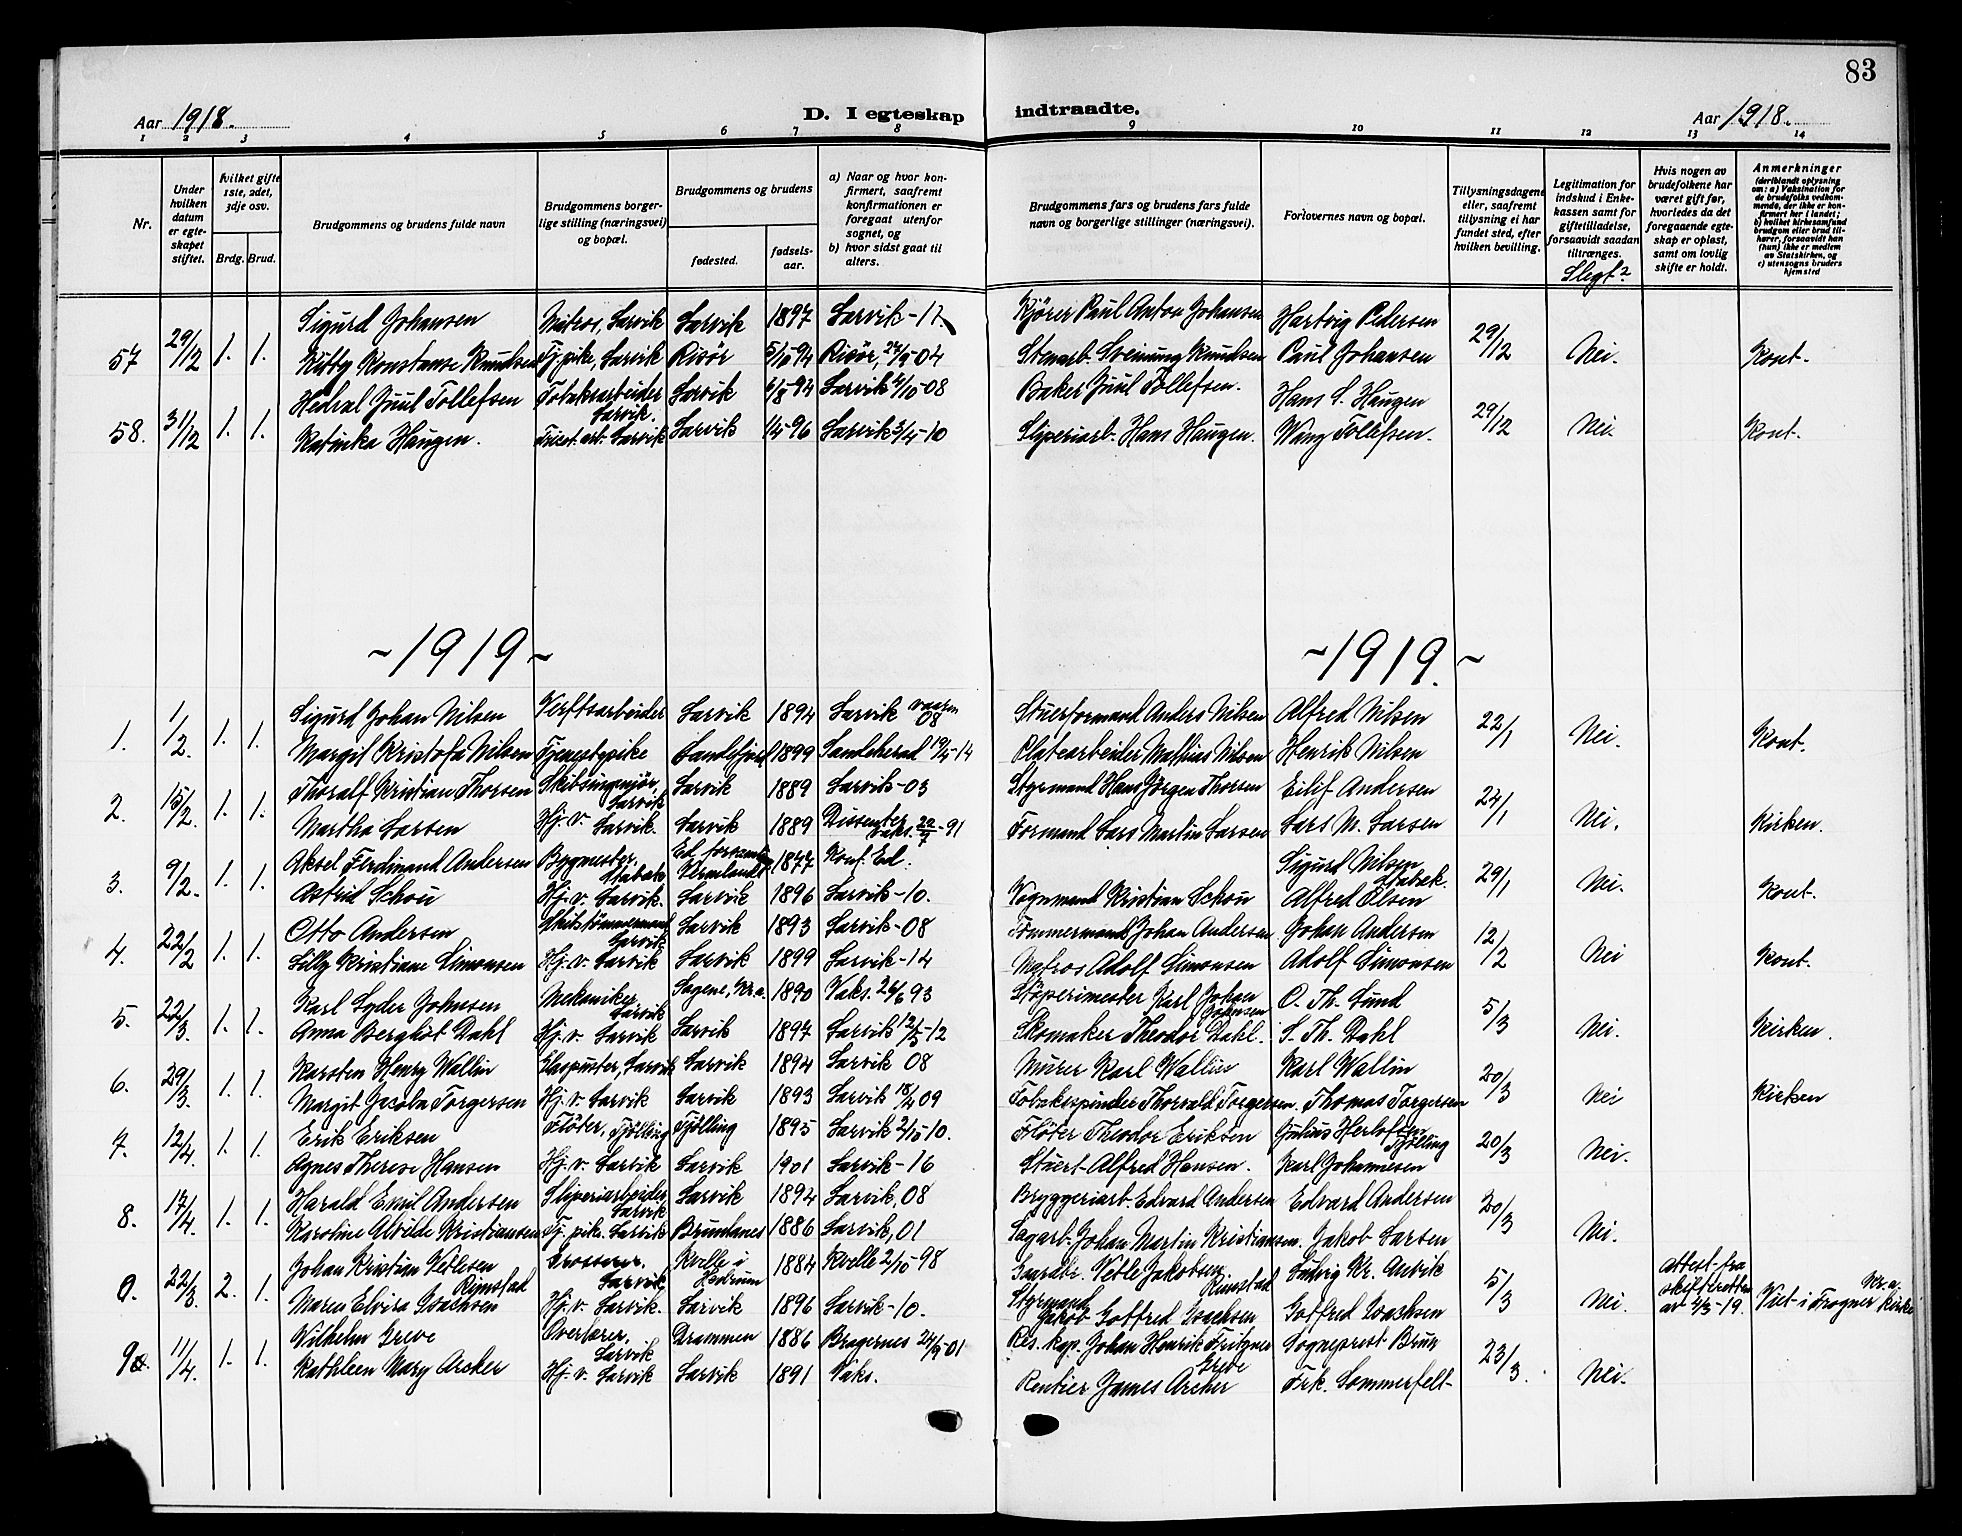 83
Aar 1918.
D. I egteskap indtraadte.
Aar 1918.
1 2 3 4 5 6 7 8 9 10 11 12 13 14
Nr.
Under hvilken datum er egteskapet stiftet.
hvilket gifte 1ste, 2det, 3dje osv.
Brdg. Brud.
Brudgommens og brudens fulde navn
Brudgommens borgerlige stilling (næringsvei) og bopæl.
Brudgommens og brudens
fødested.
fødselsaar.
a) Naar og hvor konfirmert, saafremt konfirmationen er foregaat utenfor sognet, og
b) hvor sidst gaat til alters.
Brudgommens fars og brudens fars fulde navn og borgerlige stillinger (næringsvei).
Forlovernes navn og bopæl.
Tillysningsdagene eller, saafremt tillysning ei har fundet sted, efter hvilken bevilling.
Legitimation for indskud i Enkekassen samt for giftetilladelse, forsaavidt saadan tiltrænges.
Slegt?
Hvis nogen av brudefolkene har været gift før, hvorledes da det foregaaende egteskap er opløst, samt om lovlig skifte er holdt.
Anmerkninger (deriblandt oplysning om: a) Vaksination for de brudefolks vedkommende, der ikke er konfirmert her i landet; b) hvilket kirkesamfund brudgom eller brud tilhører, forsaavidt han (hun) ikke er medlem av Statskirken, og c) utensogns bruders hjemsted
57 29/12 1. 1. Sigurd Johansen Matros, Larvik Larvik 1897 Larvik - 11. Kjörer Paul Anton Johansen Hartvig Pedersen 29/12 Nei. Kont.
Kitty Konstanse Knudsen Tj. pike, Larvik Risör 5/10-94 Risör, 24/9-04 Stenarb. Sveinung Knudsen Paul Johansen
58. 31/12 1. 1. Juul Tollefsen Tobaksarbeider Larvik. Larvik 6/8-94 Larvik 4/10-08 Baker Juul Tollefsen. Hans S. Haugen 29/12 Nei. Kont.
Katinka Haugen. Larvik Larvik 1/4-96 Larvik 3/4-10 Sliperiarb. Hans Haugen. Wang Tollefsen.
~1919~ ~1919.~
1. 1/2 1. 1. Sigurd Johan Nilsen Verftsarbeider Larvik 1894 Larvik vaaren 08 Stuerformand Anders Nilsen Alfred Nilsen 22/1 Nei. Kont.
Margit Kristofa Nilsen Tjenestepike Sandefjord 1899 Sandeherad 19/4-14 Platearbeider Mathias Nilsen Henrik Nilsen
2. 15/2. 1. 1. Thoralf Kristian Thorsen Skibsingenjör, Larvik Larvik 1889 Larvik - 03 Styrmand Hans Jörgen Thorsen Eilif Andersen 24/1 Nei. Kirken.
Martha Larsen Hj. v. Larvik. Larvik 1889 Dissenter vaks. 20/7-91 Formand Lars Martin Larsen Lars M. Larsen
3. 9/2. 1. 1. Aksel Ferdinand Andersen Bygmester, Stabæk Ed Vermland 1877 Konf. Ed. Sigurd Nilsen Stabæk. 29/1 Nei. Kont.
Astrid Schou Hj. v. Larvik. Larvik 1896 Larvik - 10. Vognmand Kristian Schou Alfred Olsen
4. 22/2 1. 1. Otto Andersen Skibstömmermand Larvik Larvik 1893 Larvik - 08 Tömmermand Johan Andersen Johan Andersen 12/2 Nei Kont.
Lilly Kristiane Simonsen Hj. v. Larvik Larvik 1899 Larvik - 14 Matros Adolf Simonsen Adolf Simonsen
5. 22/3. 1. 1. Karl Lyder Johnsen Mekaniker Larvik Sagene, Kr.a. 1890 Vaks. 26/6 93 Stöperimester Karl Johan Johnsen O. Th. Lund 5/3 Nei. Kirken.
Anna Bergliot Dahl Hj. v. Larvik Larvik 1897 Larvik 12/5-12 Skomaker Theodor Dahl. S. Th. Dahl
6. 29/3. 1. 1. Karsten Henry Wallin Glaspuster, Larvik Larvik 1894 Larvik 08 Murer Karl Wallin Karl Wallin 20/3 Nei Kirken
Margit Jacoba Torgersen Hj. v. Larvik Larvik 1893 Larvik 18/4 09 Tobakspinder Thorvald Torgersen. Thomas Torgersen
7. 12/4. 1. 1. Erik Eriksen Flöter, Tjölling Tjölling 1895 Larvik 2/10-10. Flöter Theodor Eriksen Julius Herlofsen Tjölling 20/3 Nei.
Agnes Therese Hansen Hj. v. Larvik Larvik 1901 Larvik - 16 Stuert Alfred Hansen. Karl Johannesen
8. 17/4. 1. 1. Harald Emil Andersen Sliperiarbeider, Larvik Larvik 1894 Larvik, 08 Bryggeriarb. Edvard Andersen Edvard Andersen 20/3 Nei.
Karoline Alvilde Kristiansen Tj. pike. Larvik Brunlanes 1886 Larvik, 01 Sagarb. Johan Martin Kristiansen. Jakob Larsen
9. 22/3. 2. 1. Johan Kristian Vetlesen Rimstad Grosserer, Larvik Kvelle i Hedrum 1884 Kvelle 2/10-98 Gaardbr. Vetle Jakobsen Rimstad Ludvig Kr. Anvik 5/3 Nei. Attest fra skifteretten av 4/3-19. Viet i Frogner kirke Kr.a.
Maren Elvira Isachsen Hj. v. Larvik. Larvik 1896 Larvik - 10. Styrmand Jakob Gotfred Isachsen Gotfred Isachsen
9a. 11/4. 1. 1. Wilhelm Greve Overlærer, Larvik Drammen 1886 Bragernes 24/9-01 Res. kap. Johan Henrik Fritzner Greve Sogneprest Bruun 23/3. Nei.
Kathleen Mary Archer Hj. v. Larvik Larvik 1891 Vaks. Rentier James Archer Frk. Sommerfelt